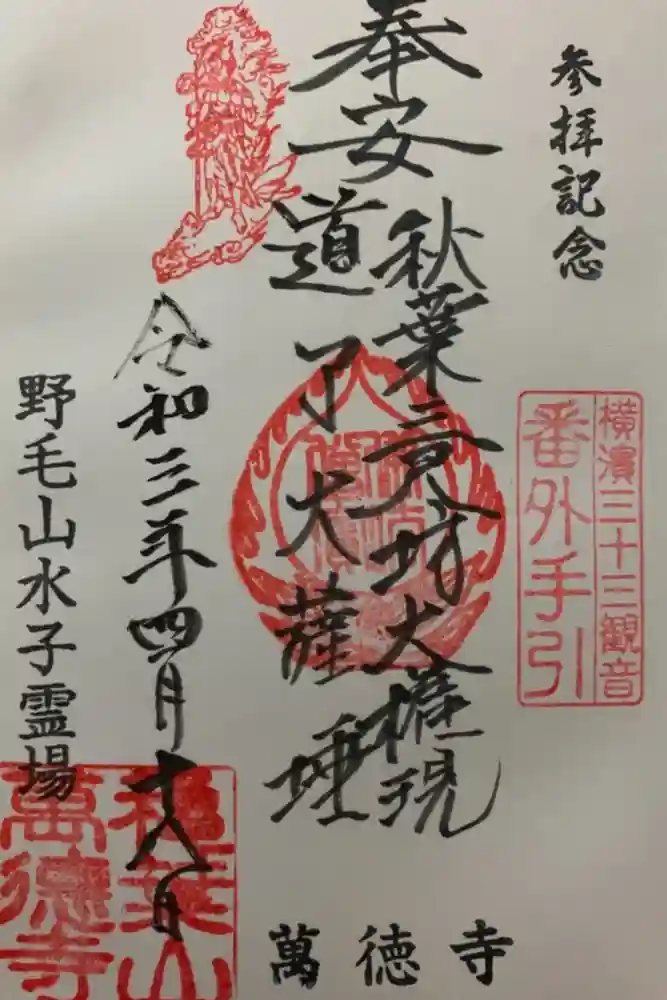 参拝記念
横濱三十三観音
番外手引
奉安
秋葉三尺坊大権現
道了大薩埵
令和三年四月十八日
野毛山水子霊場
萬徳寺
萬德寺